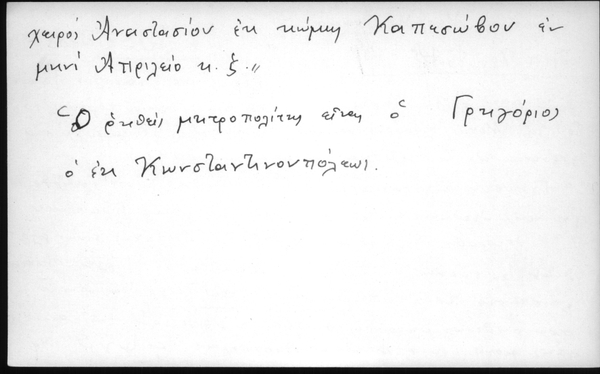 χειρός Ἀναστασίου ἐκ κώμης Καπεσώβου ἐν
μηνί Ἀπριλείο κ. ξ. "
Ὁ ῥηθείς μητροπολίτης εἶναι ὁ Γρηγόριος
ὁ ἐκ Κωνσταντινουπόλεως.